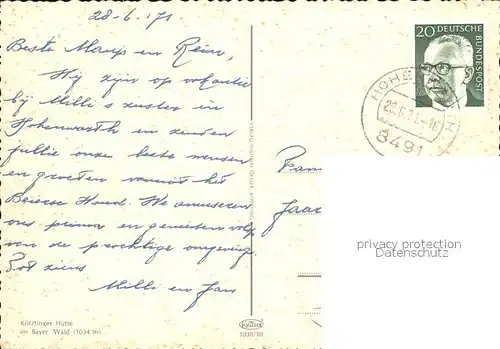 28-6-'71
Beste Maup en Reim,
Wij zijn op vakantie
bij Milli's zuster in
Hohenwarth en zenden
jullie onze beste wensen
en groeten vanuit het
Beierse Woud. We amuseren
ons prima en genieten volop
van de prachtige omgeving.
Tot ziens
Milli en Jan
Kötztinger Hütte
im Bayer. Wald (1034 m)
Krüger
1038/10
20 DEUTSCHE
BUNDESPOST
8491
Fam
privacy protection
Datenschutz